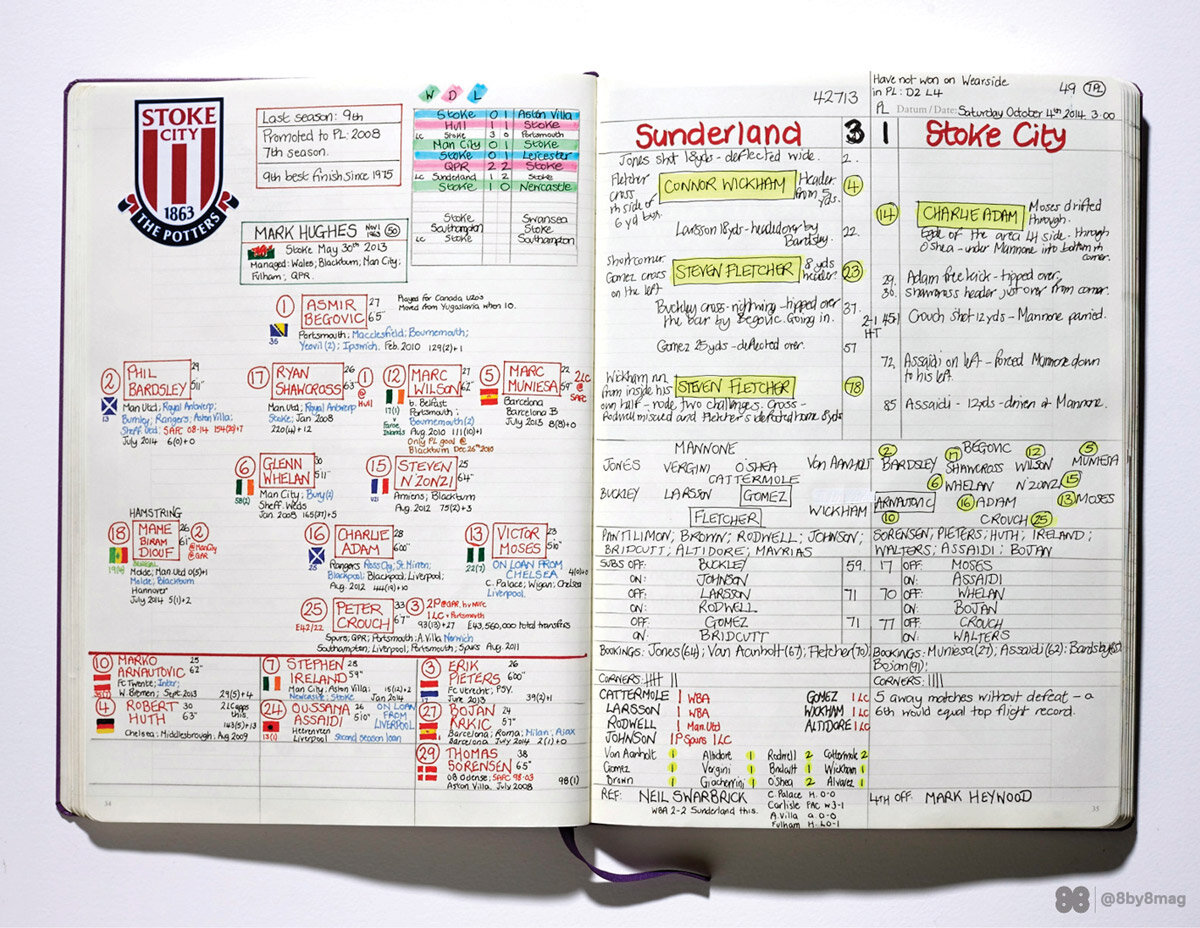 STOKE
CITY
1863
THE POTTERS
Last season: 9th
Promoted to PL: 2008
7th season.
9th best finish since 1975
W D L
Stoke 0 1 Aston Villa
Hull 1 1 Stoke
LC Stoke 3 0 Portsmouth
Man City 0 1 Stoke
Stoke 0 1 Leicester
QPR 2 2 Stoke
LC Sunderland 1 2 Stoke
Stoke 1 0 Newcastle
Stoke Swansea
Southampton Stoke
LC Stoke Southampton
MARK HUGHES Nov 1963 50
Stoke May 30th 2013
Managed: Wales; Blackburn; Man City;
Fulham; QPR.
1 ASMIR BEGOVIC 27 6'5"
Played for Canada U20s
Moved from Yugoslavia when 10.
36
Portsmouth; Macclesfield; Bournemouth;
Yeovil (2); Ipswich. Feb. 2010 129(2)+1
2 PHIL BARDSLEY 29 5'11"
13
Man Utd; Royal Antwerp;
Burnley; Rangers; Aston Villa;
Sheff. Utd; SAFC 08-14 154(20)+7
July 2014 6(0)+0
17 RYAN SHAWCROSS 26 6'3" 1 @ Hull
Man Utd; Royal Antwerp
Stoke; Jan 2008
220(4)+12
12 MARC WILSON 27 6'2"
17(1)
Faroe Islands
b. Belfast
Portsmouth;
Bournemouth (2)
Aug 2010 111(10)+1
Only PL goal @
Blackburn Dec 26th 2010
5 MARC MUNIESA 22 5'9" 2LC @ SAFC
Barcelona
Barcelona B
July 2013 8(8)+0
6 GLENN WHELAN 30 5'11"
58(2)
Man City; Bury(2)
Sheff. Weds
Jan. 2008 165(37)+5
15 STEVEN N'ZONZI 25 6'4"
U21
Amiens; Blackburn
Aug 2012 75(2)+3
HAMSTRING
18 MAME BIRAM DIOUF 26 6'1" 2 @Man City @QPR
SENEGAL
Molde; Man Utd 0(5)+1
Molde; Blackburn
Hannover
July 2014 5(1)+2
16 CHARLIE ADAM 28 6'00"
25
Rangers Ross City; St. Mirren;
Blackpool; Blackpool; Liverpool;
Aug. 2012 44(19)+10
13 VICTOR MOSES 23 5'10"
22(7)
ON LOAN FROM CHELSEA 4(0)+0
C. Palace; Wigan; Chelsea
Liverpool.
25 PETER CROUCH 33 6'7" 3
2P @QPR, hv Nufc
1LC v Portsmouth
E42/22
93(13)+27 £43,560,000 total transfers
Spurs; QPR; Portsmouth; A.Villa Norwich
Southampton; Liverpool; Portsmouth; Spurs Aug. 2011
10 MARKO ARNAUTOVIC 25 6'2"
FC Twente; Inter;
W. Bremen; Sept 2013 29(5)+4
7 STEPHEN IRELAND 28 5'9"
Man City; Aston Villa; 15(12)+2
Newcastle; Stoke Jan 2014
3 ERIK PIETERS 26 6'00"
FC Utrecht; PSV.
June 2013 39(2)+1
4 ROBERT HUTH 30 6'3" 2LC apps this.
143(5)+13
Chelsea; Middlesbrough; Aug 2009
24 OUSSAMA ASSAIDI 26 5'10" ON LOAN FROM LIVERPOOL
13(1)
Heerenveen
Liverpool Second season loan
27 BOJAN KRKIC 24 5'7"
Barcelona; Roma; Milan; Ajax
Barcelona July 2014 2(1)+0
29 THOMAS SORENSEN 38 6'5"
OB Odense; SAFC 98-03 98(1)
Aston Villa. July 2008
34
42713
Have not won on Wearside
in PL: D2 L4
49 7PL
PL Datum / Date: Saturday October 4th 2014 3.00
Sunderland 3 1 Stoke City
Jones shot 18yds - deflected wide. 2.
Fletcher cross rh side of 6 yd box. CONNOR WICKHAM Header from 5 yds. 4
14 CHARLIE ADAM Moses drifted through.
Edge of the area LH side. through
O'Shea - under Mannone into bottom rh
corner.
Larsson 18yds - headed over by Bardsley. 22.
Short corner Gomez cross on the left STEVEN FLETCHER 8 yds header. 23
29. Adam free kick - tipped over,
30. Shawcross header just over from corner.
Buckley cross - right wing - tipped over
the bar by Begovic. Going in. 37.
2-1 HT
45+1 Crouch shot 12yds - Mannone parried.
Gomez 25yds - deflected over. 57
72, Assaidi on left - forced Mannone down
to his left.
Wickham run from inside his own half - rode two challenges. Cross - STEVEN FLETCHER 78
Rodwell missed and Fletcher's defected home 8yds
85 Assaidi - 12yds - driven at Mannone
MANNONE
JONES VERGINI O'SHEA VAN AANHOLT
CATTERMOLE
BUCKLEY LARSSON GOMEZ
FLETCHER WICKHAM
BEGOVIC
2 BARDSLEY 17 SHAWCROSS 12 WILSON 5 MUNIESA
6 WHELAN N'ZONZI 15
ARNAUTOVIC 10 16 ADAM 13 MOSES
CROUCH 25
PANTILIMON; BROWN; RODWELL; JOHNSON;
BRIDCUTT; ALTIDORE; MAVRIAS
SORENSEN; PIETERS; HUTH; IRELAND;
WALTERS; ASSAIDI; BOJAN
SUBS OFF: BUCKLEY 59. 17 OFF: MOSES
ON: JOHNSON ON: ASSAIDI
OFF: LARSSON 71 70 OFF: WHELAN
ON: RODWELL ON: BOJAN
OFF: GOMEZ 71 77 OFF: CROUCH
ON: BRIDCUTT ON: WALTERS
BOOKINGS: Jones (64); Van Aanholt (67); Fletcher (70)
BOOKINGS: Muniesa (27); Assaidi (62); Bardsley
Bojan (91);
CORNERS:
CORNERS:
CATTERMOLE 1 WBA GOMEZ 1 LC
LARSSON 1 WBA WICKHAM 1 LC
RODWELL 1 Man. Utd ALTIDORE 1 LC
JOHNSON 1P Spurs 1 LC
5 away matches without defeat - a
6th would equal top flight record.
Van Aanholt 1 Altidore 1 Rodwell 2 Cattermole 2
Gomez 1 Vergini 1 Bridcutt 1 Wickham 1
Brown 1 Giaccherini 1 O'Shea 2 Alvarez 1
REF: NEIL SWARBRICK
WBA 2-2 Sunderland this.
C. Palace H. 0-0
Carlisle FAC W3-1
A. Villa a. 0-0
Fulham H. L0-1
4TH OFF: MARK HEYWOOD
35
@8by8mag